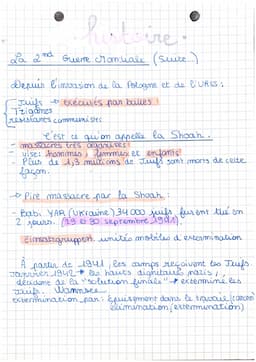 histoire.
La 2nd Guerre Mondiale (suite..)
Depuis l'invasion de la Pologne et de l'URSS:
Juifs → exécutés par balles !
Tziganes
résistants communistes
C'est ce qu'on appelle la Shoah.
- massacres très organisés
- vise: hommes, femmes et enfants
- Plus de 1,3 millions de Juifs sont morts de cette
façon.
→ Pire massacre par la Shoah:
- Babi YAR (Ukraine) 34 000 juifs furent tué en
2 jours. (29 à 30 septembre 1941)
Einsatzgruppen: unités mobiles d'extermination
À partir de 1941, les camps reçoivent les Juifs
Janvier 1942 → les hauts dignitaires nazis,
décident de la "solution finale" → exterminé les
Juifs. Wannsee
extermination par: épuisement dans le travail
élimination, extermination)